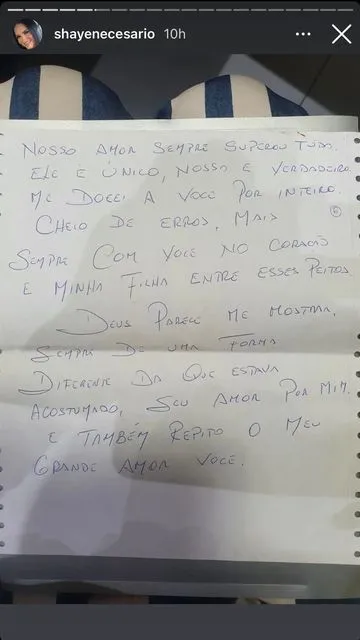 shayenecesario 10h
NOSSO AMOR SEMPRE SUPEROU TUDO.
ELE É ÚNICO, NOSSO E VERDADEIRO
ME DOEEI A VOCE POR INTEIRO.
CHEIO DE ERROS, MAIS
SEMPRE COM VOCE NO CORAÇÃO
E MINHA FILHA ENTRE ESSES PEITOS.
DEUS PARECE ME MOSTRAR,
SEMPRE DE UMA FORMA
DIFERENTE DA QUE ESTAVA
ACOSTUMADO, SEU AMOR POR MIM.
E TAMBÉM REPITO O MEU
GRANDE AMOR VOCE.